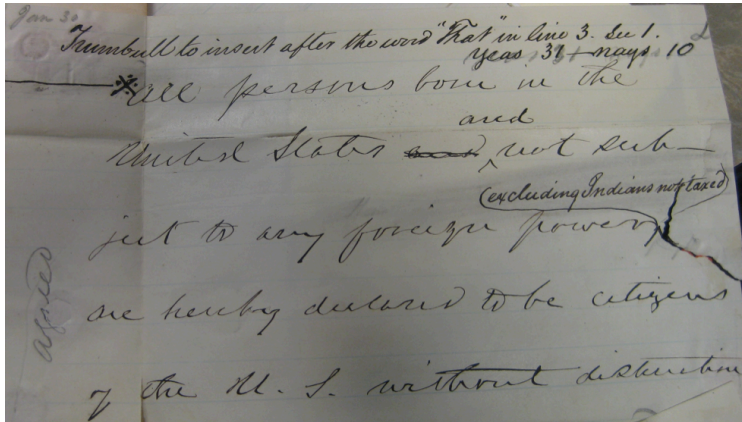 Jan 30
Trumbull to insert after the word "That" in line 3. Sec 1.
yeas 31 nays 10
※all persons born in the
and
United States and not sub-
(excluding Indians not taxed)
ject to any foreign power,
are hereby declared to be citizens
of the U. S. without distinction
agreed